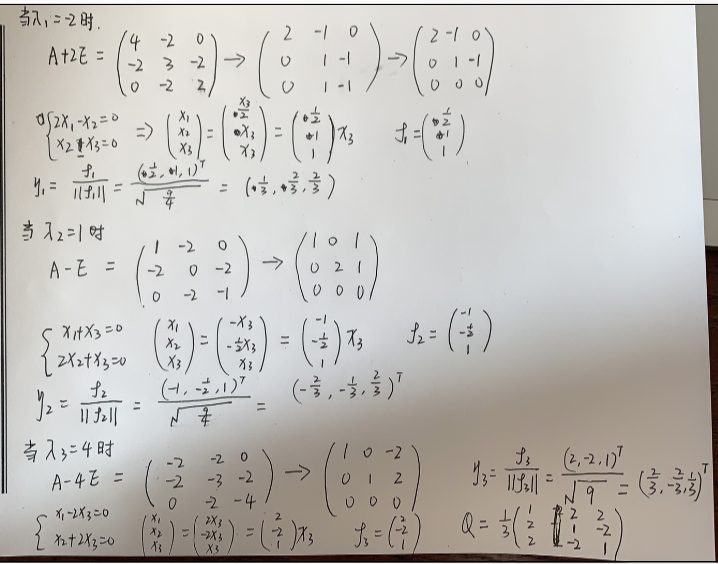 当λ₁=-2时.
A+2E = (4 -2 0; -2 3 -2; 0 -2 2) → (2 -1 0; 0 1 -1; 0 1 -1) → (2 -1 0; 0 1 -1; 0 0 0)
{2x₁-x₂=0; x₂-x₃=0 => (x₁; x₂; x₃) = (x₃/2; x₃; x₃) = (1/2; 1; 1) x₃ ρ₁= (1/2; 1; 1)
y₁= ρ₁/||ρ₁|| = (1/2, 1, 1)ᵀ/√(9/4) = (1/3, 2/3, 2/3)
当λ₂=1时
A-E = (1 -2 0; -2 0 -2; 0 -2 -1) → (1 0 1; 0 2 1; 0 0 0)
{x₁+x₃=0; 2x₂+x₃=0 (x₁; x₂; x₃) = (-x₃; -1/2x₃; x₃) = (-1; -1/2; 1) x₃ ρ₂= (-1; -1/2; 1)
y₂ = ρ₂/||ρ₂|| = (-1, -1/2, 1)ᵀ/√(9/4) = (-2/3, -1/3, 2/3)ᵀ
当λ₃=4时
A-4E = (-2 -2 0; -2 -3 -2; 0 -2 -4) → (1 0 -2; 0 1 2; 0 0 0) y₃= ρ₃/||ρ₃|| = (2,-2,1)ᵀ/√9 = (2/3, -2/3, 1/3)ᵀ
{x₁-2x₃=0; x₂+2x₃=0 (x₁; x₂; x₃) = (2x₃; -2x₃; x₃) = (2; -2; 1) x₃ ρ₃= (2; -2; 1) Q = 1/3 (1 2 2; 2 1 -2; 2 -2 1)